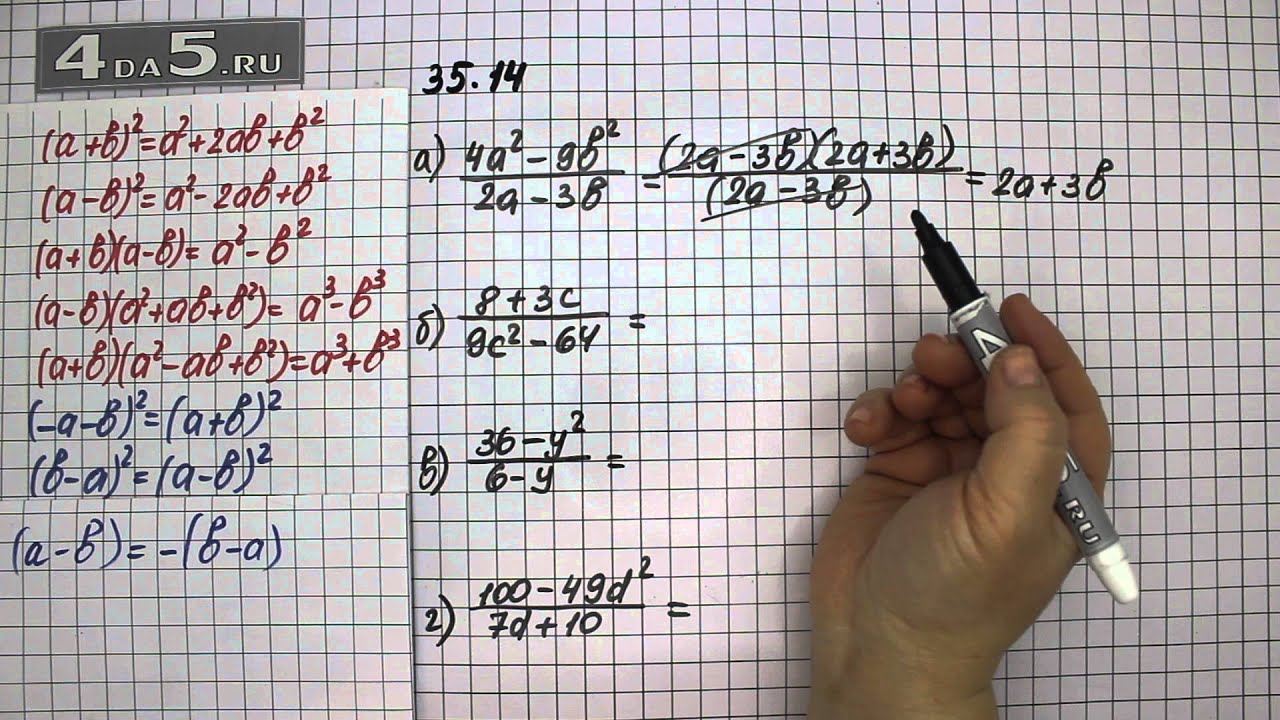 4DA5.RU
(a+b)²=a²+2ab+b²
(a-b)²=a²-2ab+b²
(a+b)(a-b)=a²-b²
(a-b)(a²+ab+b²)=a³-b³
(a+b)(a²-ab+b²)=a³+b³
(-a-b)²=(a+b)²
(b-a)²=(a-b)²
(a-b)=-(b-a)
35.14
а) (4a²-9b²)/(2a-3b) = ((2a-3b)(2a+3b))/((2a-3b)) = 2a+3b
б) (8+3c)/(9c²-64) =
в) (36-y²)/(6-y) =
г) (100-49d²)/(7d+10) =
.RU